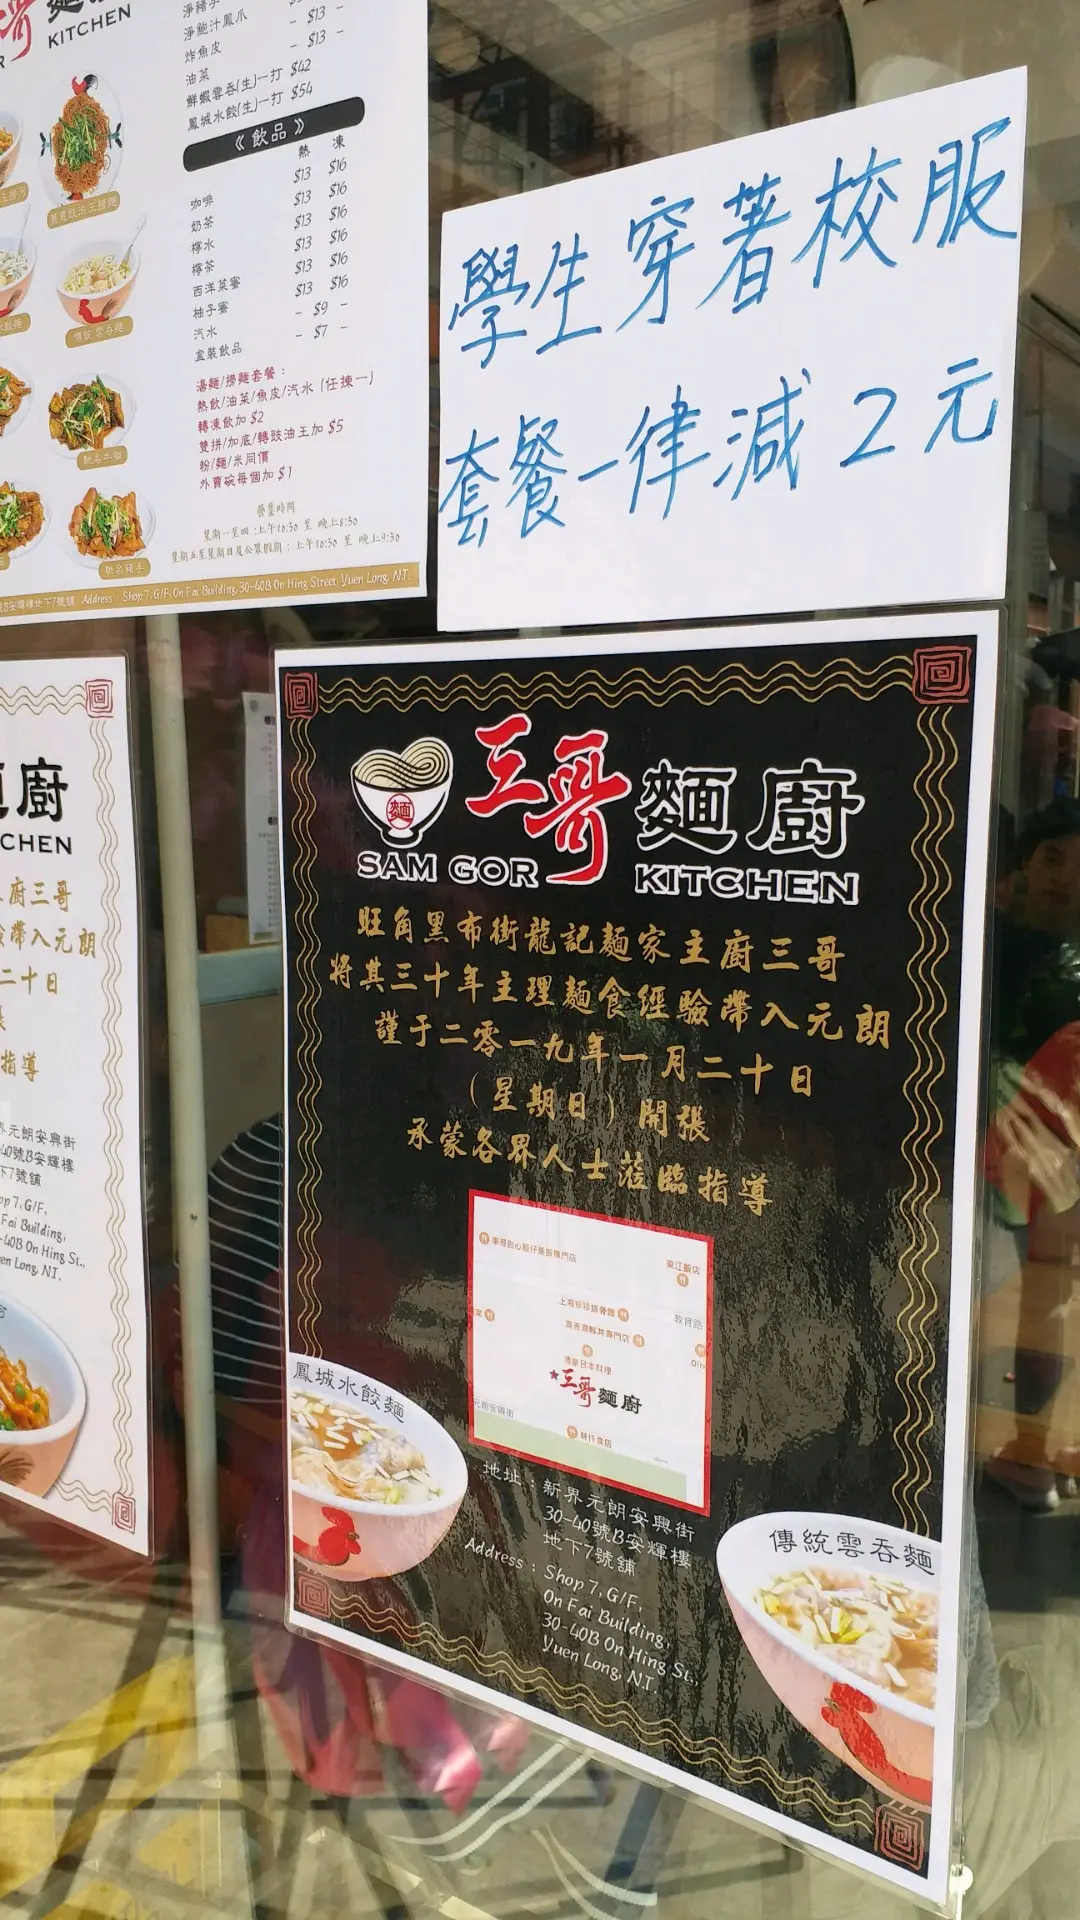 麵
KITCHEN
淨鮑汁鳳爪 - $13 -
炸魚皮 - $13 -
油菜 - $13 -
鮮蝦雲吞(生)一打 $42
鳳城水餃(生)一打 $54
《飲品》
熱 凍
咖啡 $13 $16
奶茶 $13 $16
檸水 $13 $16
檸茶 $13 $16
西洋菜蜜 $13 $16
柚子蜜 $13 $16
汽水 - $9 -
盒裝飲品 - $7 -
湯麵/撈麵套餐：
熱飲/油菜/魚皮/汽水 (任揀一)
轉凍飲加 $2
雙拼/加底/轉豉油王加 $5
粉/麵/米同價
外賣碗每個加 $1
營業時間
星期一至四：上午10:30 至 晚上8:30
星期五至星期日及公眾假期：上午10:30 至 晚上9:30
地下7號舖 Address：Shop 7, G/F, On Fai Building, 30-40B On Hing Street, Yuen Long, N.T.
薑蔥豉油王撈麵
傳統雲吞麵
馳名牛腩
馳名豬手
學生穿著校服
套餐一律減2元
廚
CHEN
廚三哥
驗帶入元朗
二十日
指導
界元朗安興街
40號B安輝樓
下7號舖
op 7, G/F,
Fai Building,
-40B On Hing St.,
en Long, N.T.
三哥麵廚
麵
SAM GOR KITCHEN
旺角黑布街龍記麵家主廚三哥
將其三十年主理麵食經驗帶入元朗
謹于二零一九年一月二十日
(星期日) 開張
承蒙各界人士蒞臨指導
東江飯店
教育路
酒泉日本料理
三哥麵廚
鳳城水餃麵
地址：新界元朗安興街
30-40號B安輝樓
地下7號舖
Address：Shop 7, G/F,
On Fai Building,
30-40B On Hing St.,
Yuen Long, N.T.
傳統雲吞麵